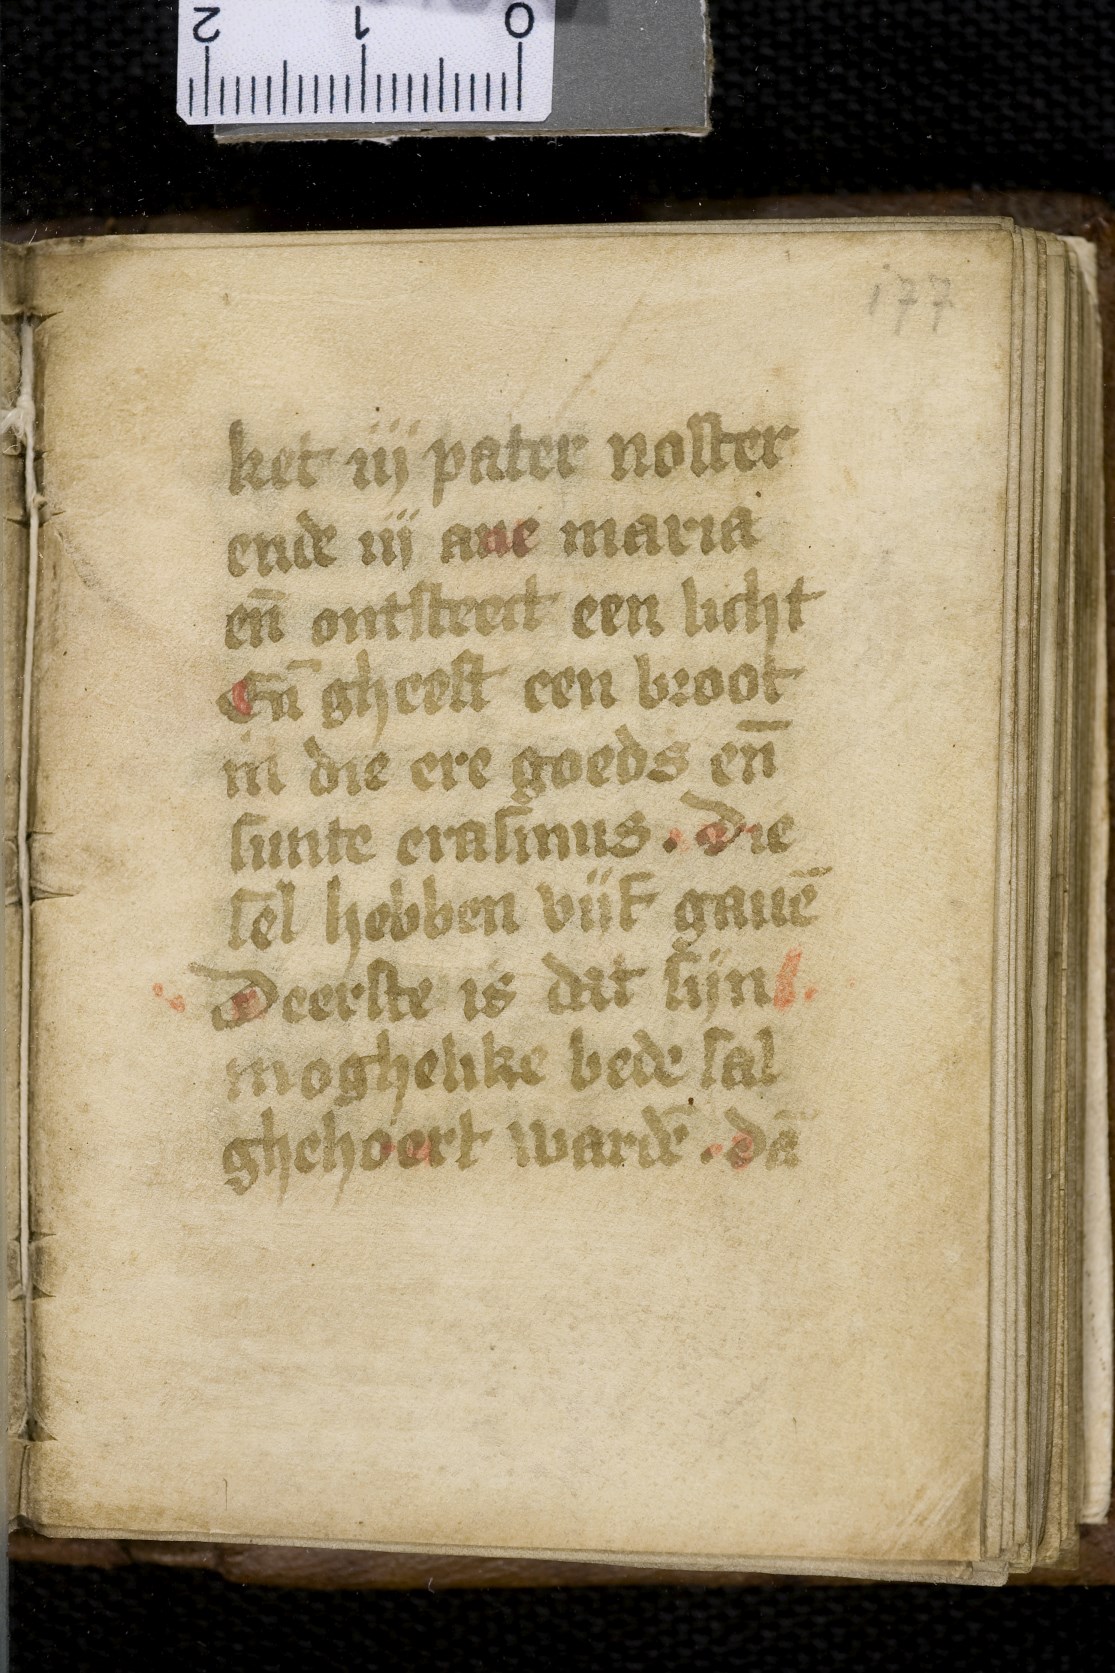 2 1 0
177
ket iij pater noster
ende iij aue maria
en̄ ontsteect een licht
En̄ gheeft een broot
in die ere goeds en̄
sunte erasmus. Die
sel hebben viif gauē
Deerste is dat sijn
moghelike bede sal
ghehoert wardē. dā